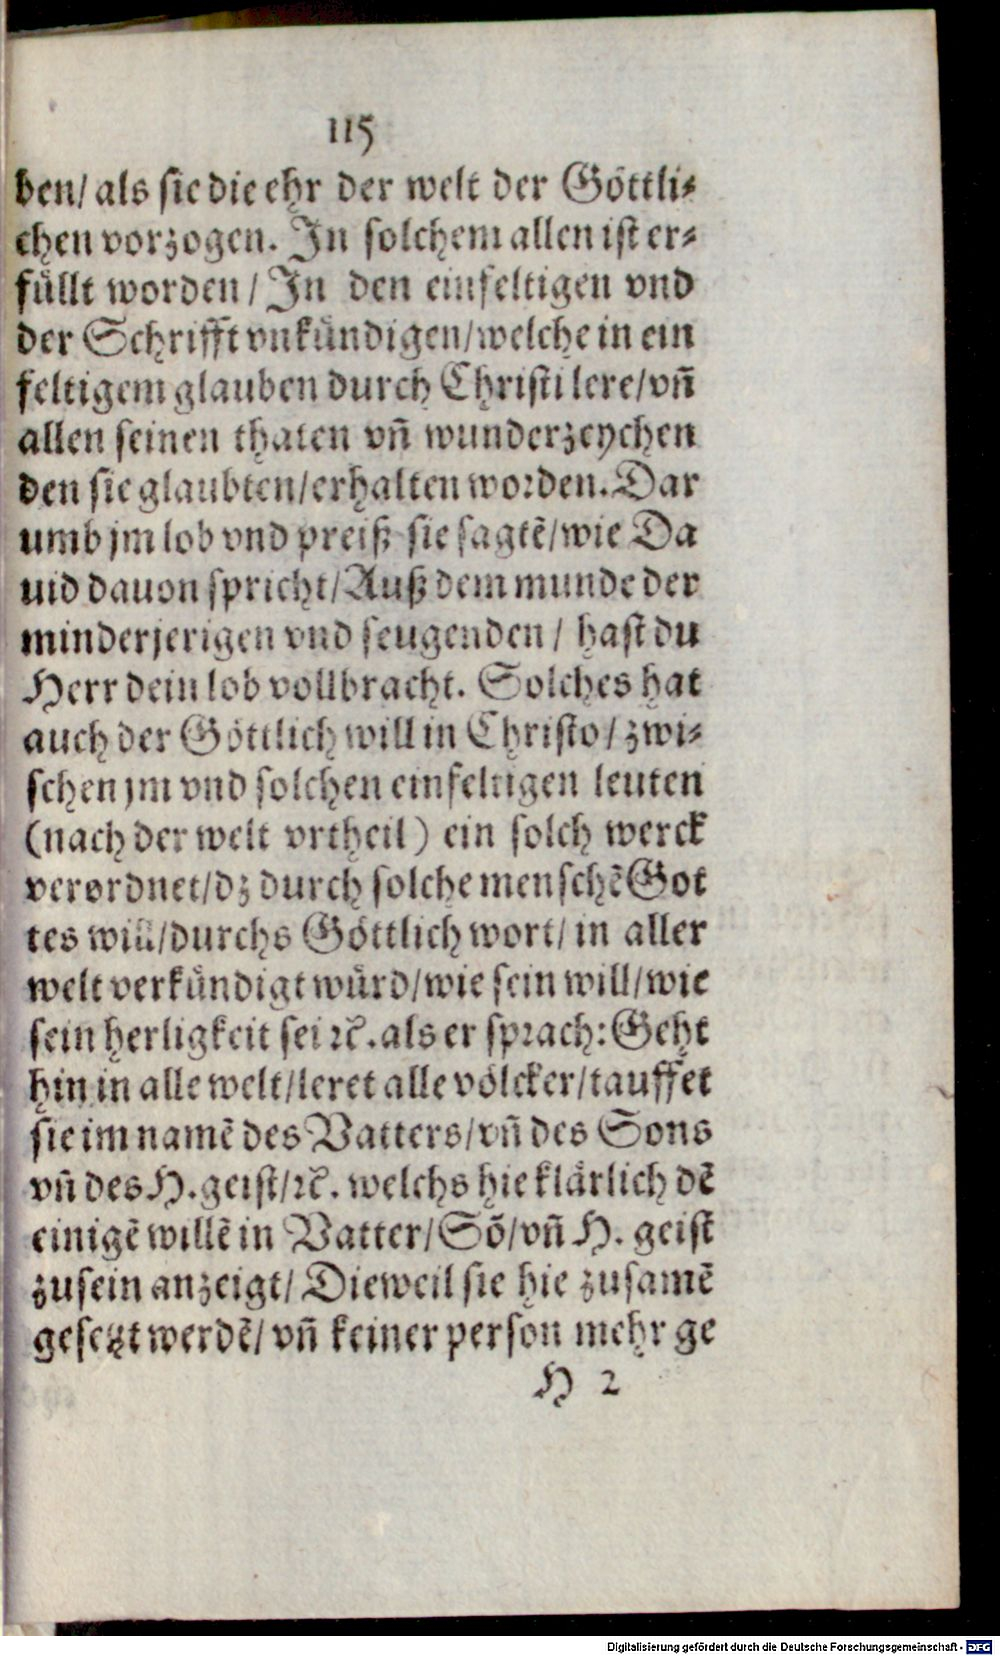 115
ben/ als sie die ehr der welt der Göttli-
chen vorzogen. In solchem allen ist er-
füllt worden/ In den einfeltigen vnd
der Schrifft vnkündigen/welche in ein
feltigem glauben durch Christi lere/vñ
allen seinen thaten vñ wunderzeychen
den sie glaubten/erhalten worden. Dar
umb jm lob vnd preiß sie sagtẽ/wie Da
uid dauon spricht/Auß dem munde der
minderjerigen vnd seugenden/ hast du
Herr dein lob vollbracht. Solches hat
auch der Göttlich will in Christo/zwi-
schen jm vnd solchen einfeltigen leuten
(nach der welt vrtheil) ein solch werck
verordnet/dz durch solche menschẽ Got
tes will/durchs Göttlich wort/ in aller
welt verkündigt würd/wie sein will/wie
sein herligkeit sei ꝛc̃. als er sprach: Geht
hin in alle welt/leret alle völcker/tauffet
sie im namẽ des Vatters/vñ des Sons
vñ des H. geist/ꝛc̃. welchs hie klärlich dẽ
einigẽ willẽ in Vatter/Sõ/vñ H. geist
zusein anzeigt/ Dieweil sie hie zusamẽ
gesetzt werdẽ/ vñ keiner person mehr ge
H 2
Digitalisierung gefördert durch die Deutsche Forschungsgemeinschaft - DFG